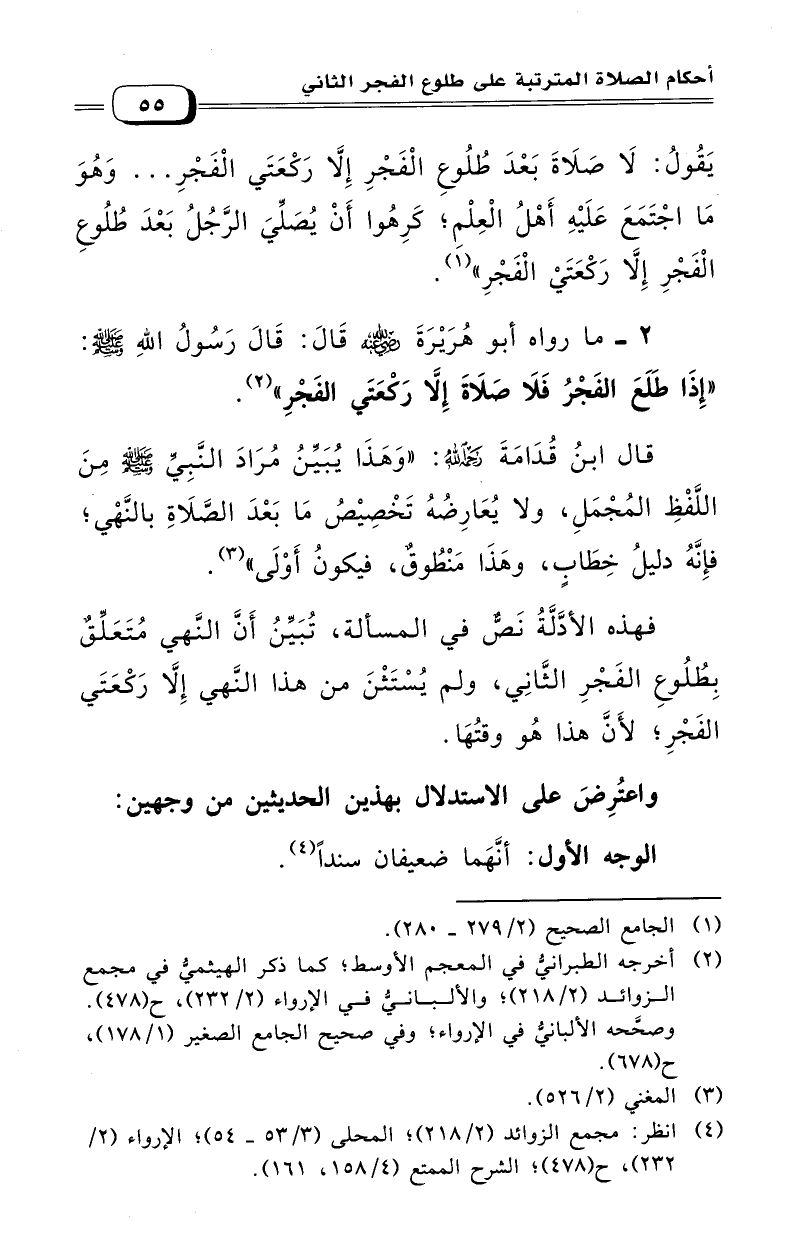 أحكام الصلاة المترتبة على طلوع الفجر الثاني
٥٥
يَقُولُ: لَا صَلَاةَ بَعْدَ طُلُوعِ الْفَجْرِ إِلَّا رَكْعَتَي الْفَجْرِ... وَهُوَ
مَا اجْتَمَعَ عَلَيْهِ أَهْلُ الْعِلْمِ؛ كَرِهُوا أَنْ يُصَلِّيَ الرَّجُلُ بَعْدَ طُلُوعِ
الْفَجْرِ إِلَّا رَكْعَتَيْ الْفَجْرِ»(١).
٢ ـ ما رواه أبو هُرَيْرَةَ رضي الله عنه قَالَ: قَالَ رَسُولُ اللهِ ﷺ:
«إِذَا طَلَعَ الفَجْرُ فَلَا صَلَاةَ إِلَّا رَكْعَتَي الفَجْرِ»(٢).
قال ابنُ قُدَامَةَ رحمه الله: «وَهَذَا يُبَيِّنُ مُرَادَ النَّبِيِّ ﷺ مِنَ
اللَّفْظِ المُجْمَلِ، ولا يُعَارِضُهُ تَخْصِيْصُ مَا بَعْدَ الصَّلَاةِ بالنَّهْي؛
فإنَّهُ دليلُ خِطَابٍ، وهَذَا مَنْطُوقٌ، فيكونُ أَوْلَى»(٣).
فهذه الأدَّلَّةُ نَصٌّ في المسألة، تُبَيِّنُ أنَّ النَّهي مُتَعَلِّقٌ
بِطُلُوعِ الفَجْرِ الثَّانِي، ولم يُسْتَثْنَ من هذا النَّهي إلَّا رَكْعَتَي
الفَجْرِ؛ لأنَّ هذا هُو وقتُهَا.
واعتُرِضَ على الاستدلال بهذين الحديثين من وجهين:
الوجه الأول: أنَّهَما ضعيفان سنداً(٤).
(١) الجامع الصحيح (٢/ ٢٧٩ ـ ٢٨٠).
(٢) أخرجه الطبرانيُّ في المعجم الأوسط؛ كما ذكر الهيثميُّ في مجمع
الـزوائـد (٢/ ٢١٨)؛ والألـبـانـيُّ فـي الإرواء (٢/ ٢٣٢)، ح(٤٧٨).
وصحَّحه الألبانيُّ في الإرواء؛ وفي صحيح الجامع الصغير (١/ ١٧٨)،
ح(٦٧٨).
(٣) المغني (٢/ ٥٢٦).
(٤) انظر: مجمع الزوائد (٢/ ٢١٨)؛ المحلى (٣/ ٥٣ ـ ٥٤)؛ الإرواء (٢/
٢٣٢)، ح(٤٧٨)؛ الشرح الممتع (٤/ ١٥٨، ١٦١).